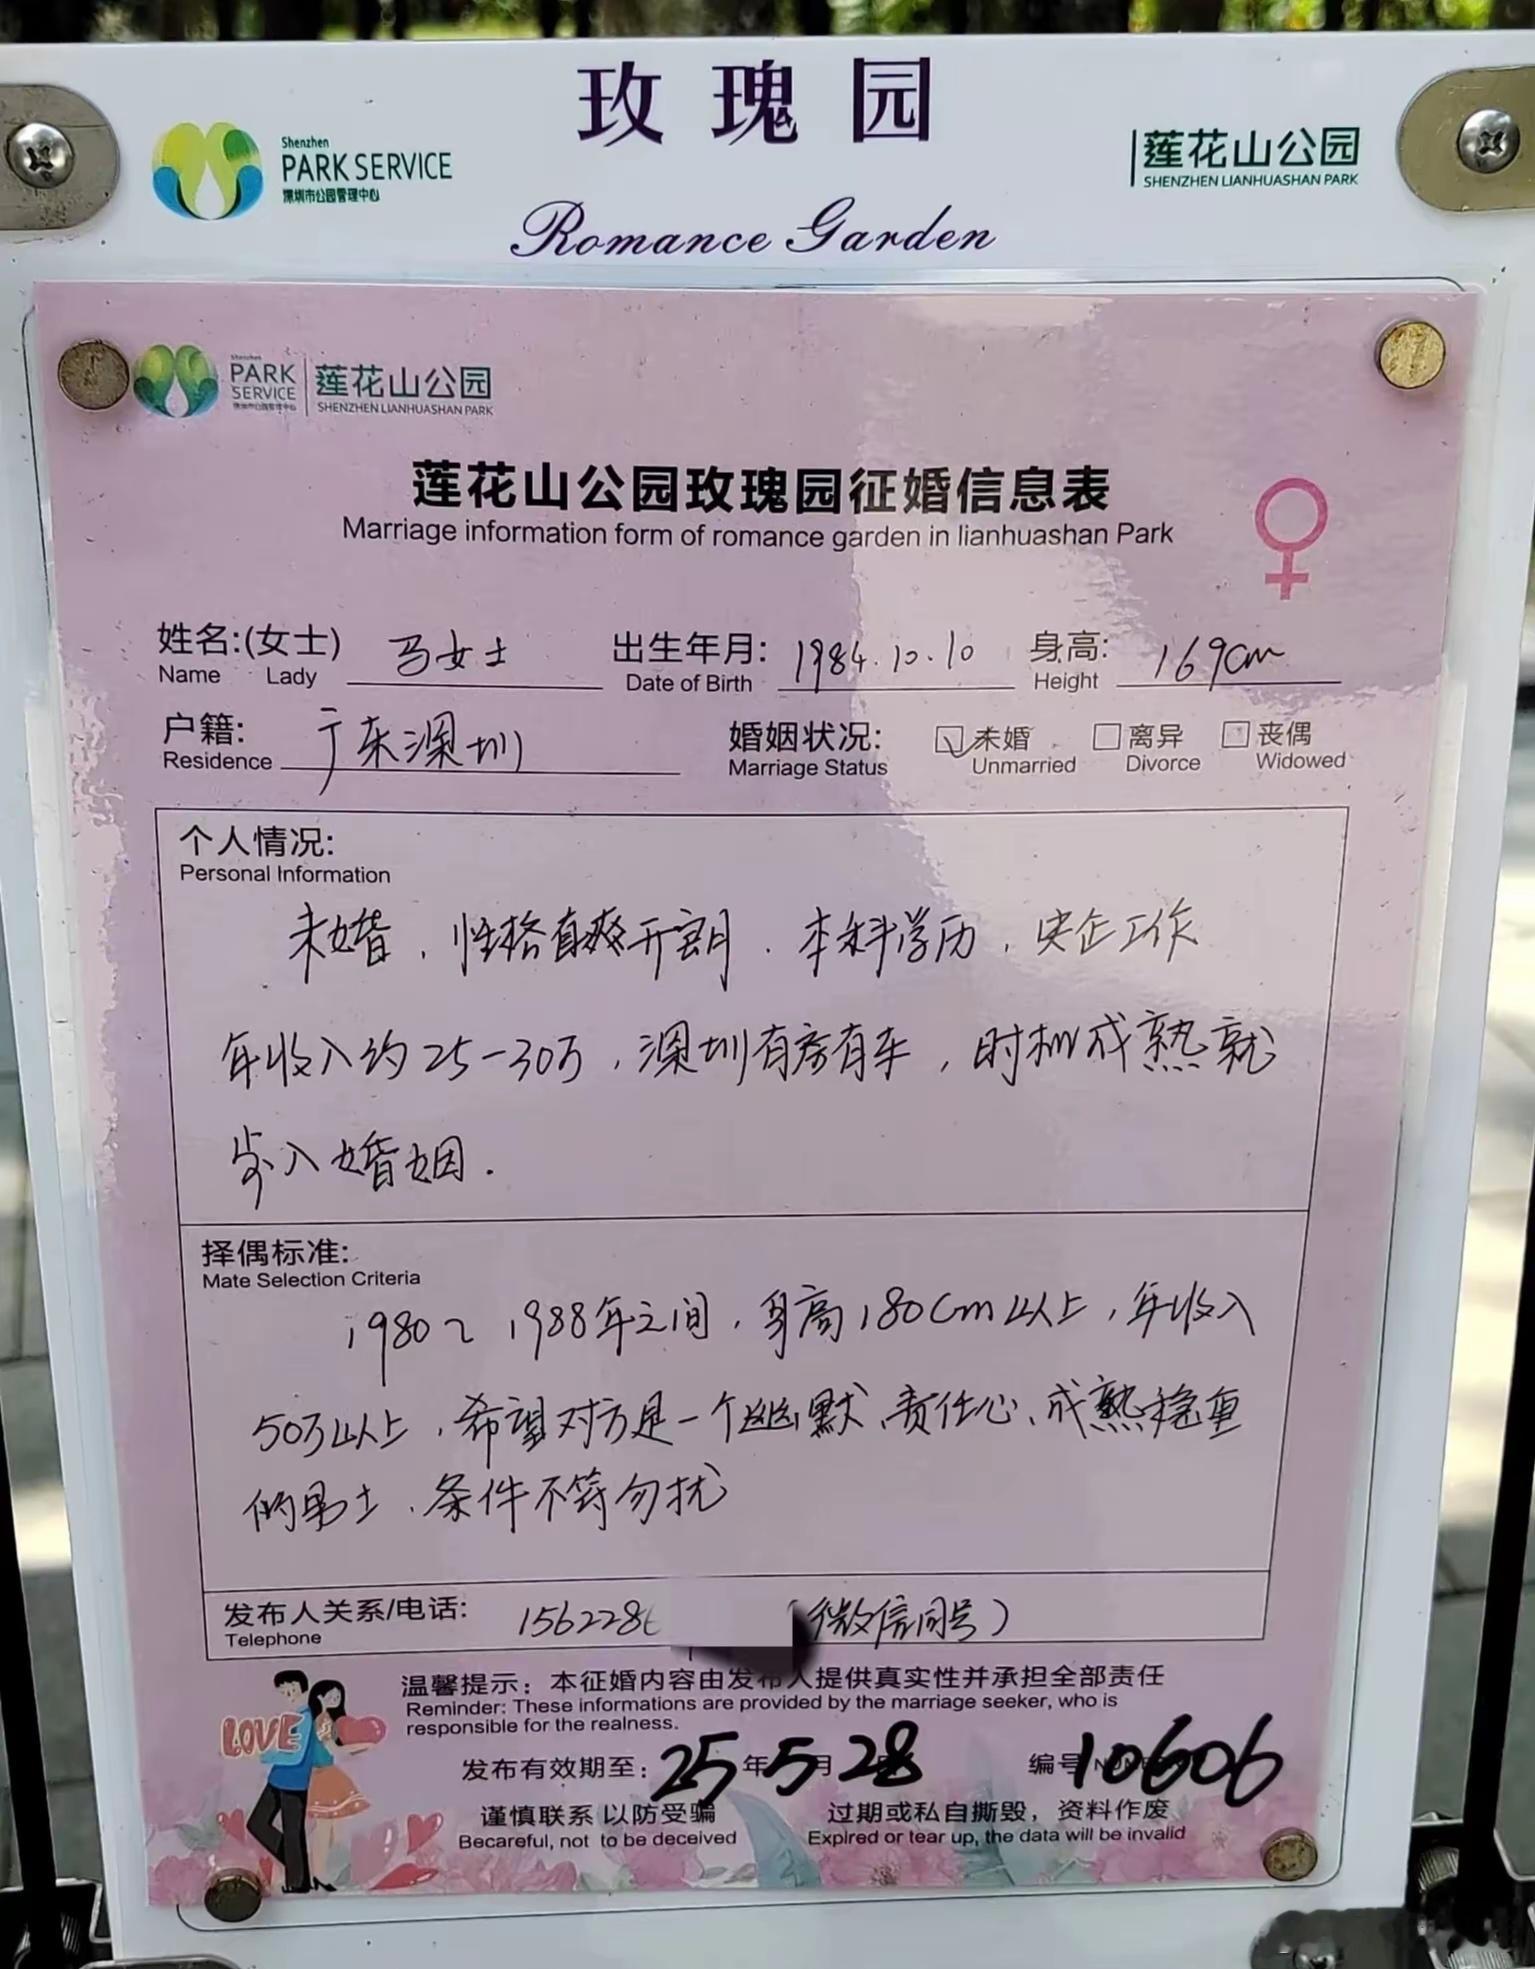 玫瑰园
Shenzhen
PARK SERVICE
深圳市公园管理中心
莲花山公园
SHENZHEN LIANHUASHAN PARK
Romance Garden
Shenzhen
PARK
SERVICE
深圳市公园管理中心
莲花山公园
SHENZHEN LIANHUASHAN PARK
莲花山公园玫瑰园征婚信息表
Marriage information form of romance garden in lianhuashan Park
姓名:(女士) 马女士 出生年月: 1984.10.10 身高: 169cm
Name Lady Date of Birth Height
户籍: 广东深圳 婚姻状况: 未婚 离异 丧偶
Residence Marriage Status Unmarried Divorce Widowed
个人情况:
Personal Information
未婚,性格直爽开朗.本科学历,央企工作
年收入约25-30万,深圳有房有车,时机成熟就
步入婚姻.
择偶标准:
Mate Selection Criteria
1980~1988年之间,身高180cm以上,年收入
50万以上,希望对方是一个幽默、责任心、成熟稳重
的男士,条件不符勿扰
发布人关系/电话: 156228 (微信同号)
Telephone
温馨提示:本征婚内容由发布人提供真实性并承担全部责任
Reminder: These informations are provided by the marriage seeker, who is
responsible for the realness.
发布有效期至: 25年5月28 编号 10606
谨慎联系 以防受骗 过期或私自撕毁,资料作废
Becareful, not to be deceived Expired or tear up, the data will be invalid
LOVE